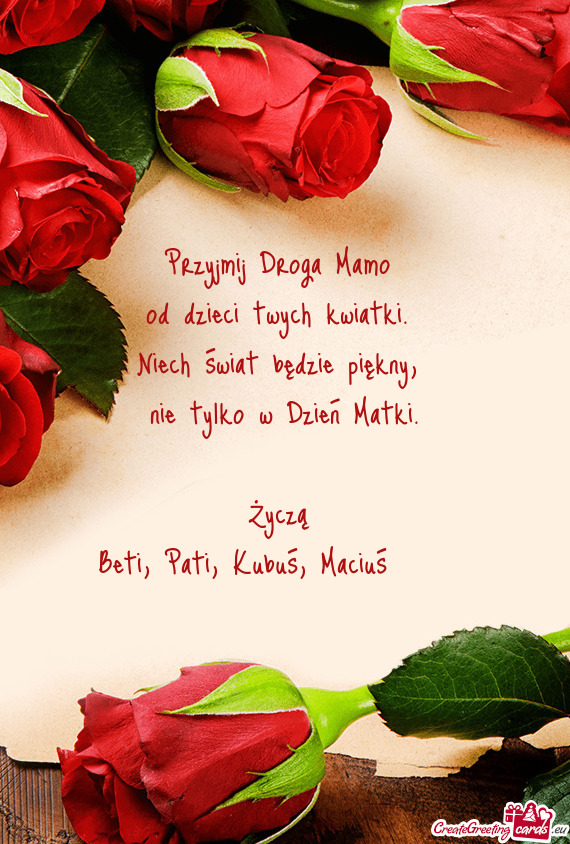 Przyjmij Droga Mamo
od dzieci twych kwiatki.
Niech świat będzie piękny,
nie tylko w Dzień Matki.
Życzą
Beti, Pati, Kubuś, Maciuś
CreateGreetingcards.eu